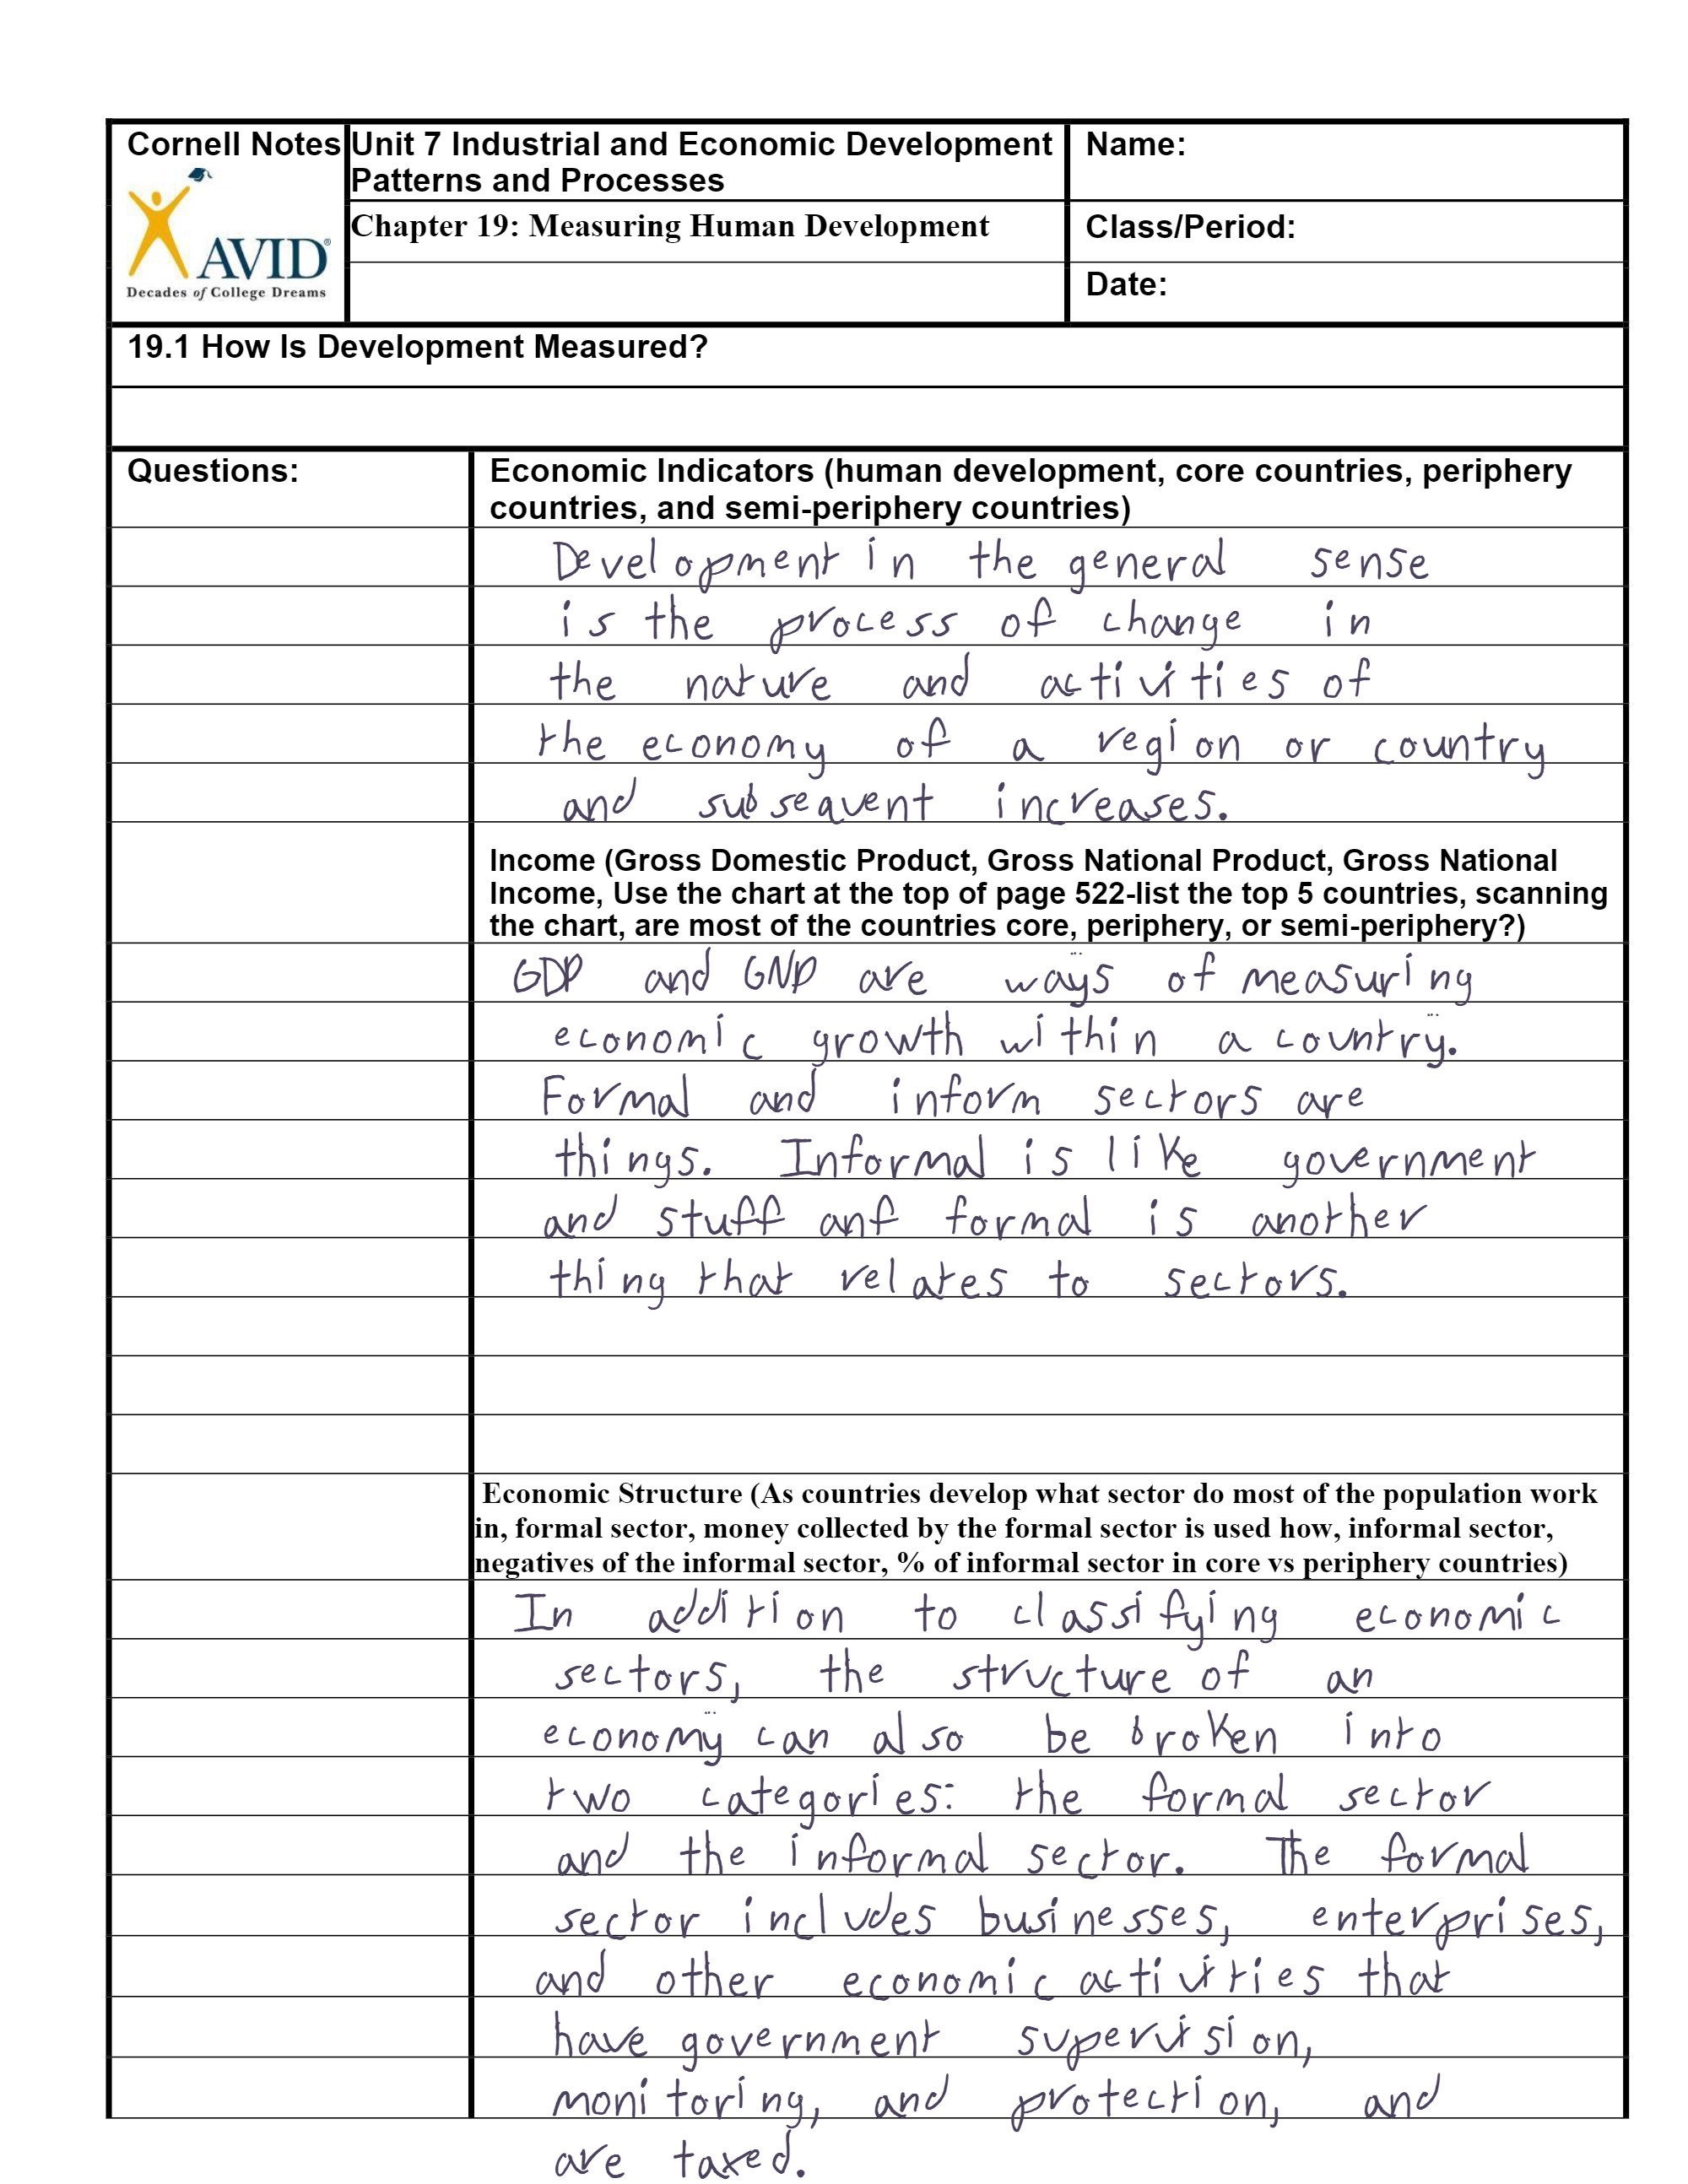 Cornell Notes
Unit 7 Industrial and Economic Development
Patterns and Processes
Name:
Chapter 19: Measuring Human Development
Class/Period:
AVID®
Decades of College Dreams
Date:
19.1 How Is Development Measured?
Questions:
Economic Indicators (human development, core countries, periphery
countries, and semi-periphery countries)
Development in the general sense
is the process of change in
the nature and activities of
the economy of a region or country
and subsequent increases.
Income (Gross Domestic Product, Gross National Product, Gross National
Income, Use the chart at the top of page 522-list the top 5 countries, scanning
the chart, are most of the countries core, periphery, or semi-periphery?)
GDP and GNP are ways of measuring
economic growth within a country.
Formal and inform sectors are
things. Informal is like government
and stuff anf formal is another
thing that relates to sectors.
Economic Structure (As countries develop what sector do most of the population work
in, formal sector, money collected by the formal sector is used how, informal sector,
negatives of the informal sector, % of informal sector in core vs periphery countries)
In addition to classifying economic
sectors, the structure of an
economy can also be broken into
two categories: the formal sector
and the informal sector. The formal
sector includes businesses, enterprises,
and other economic activities that
have government supervision,
monitoring, and protection, and
are taxed.